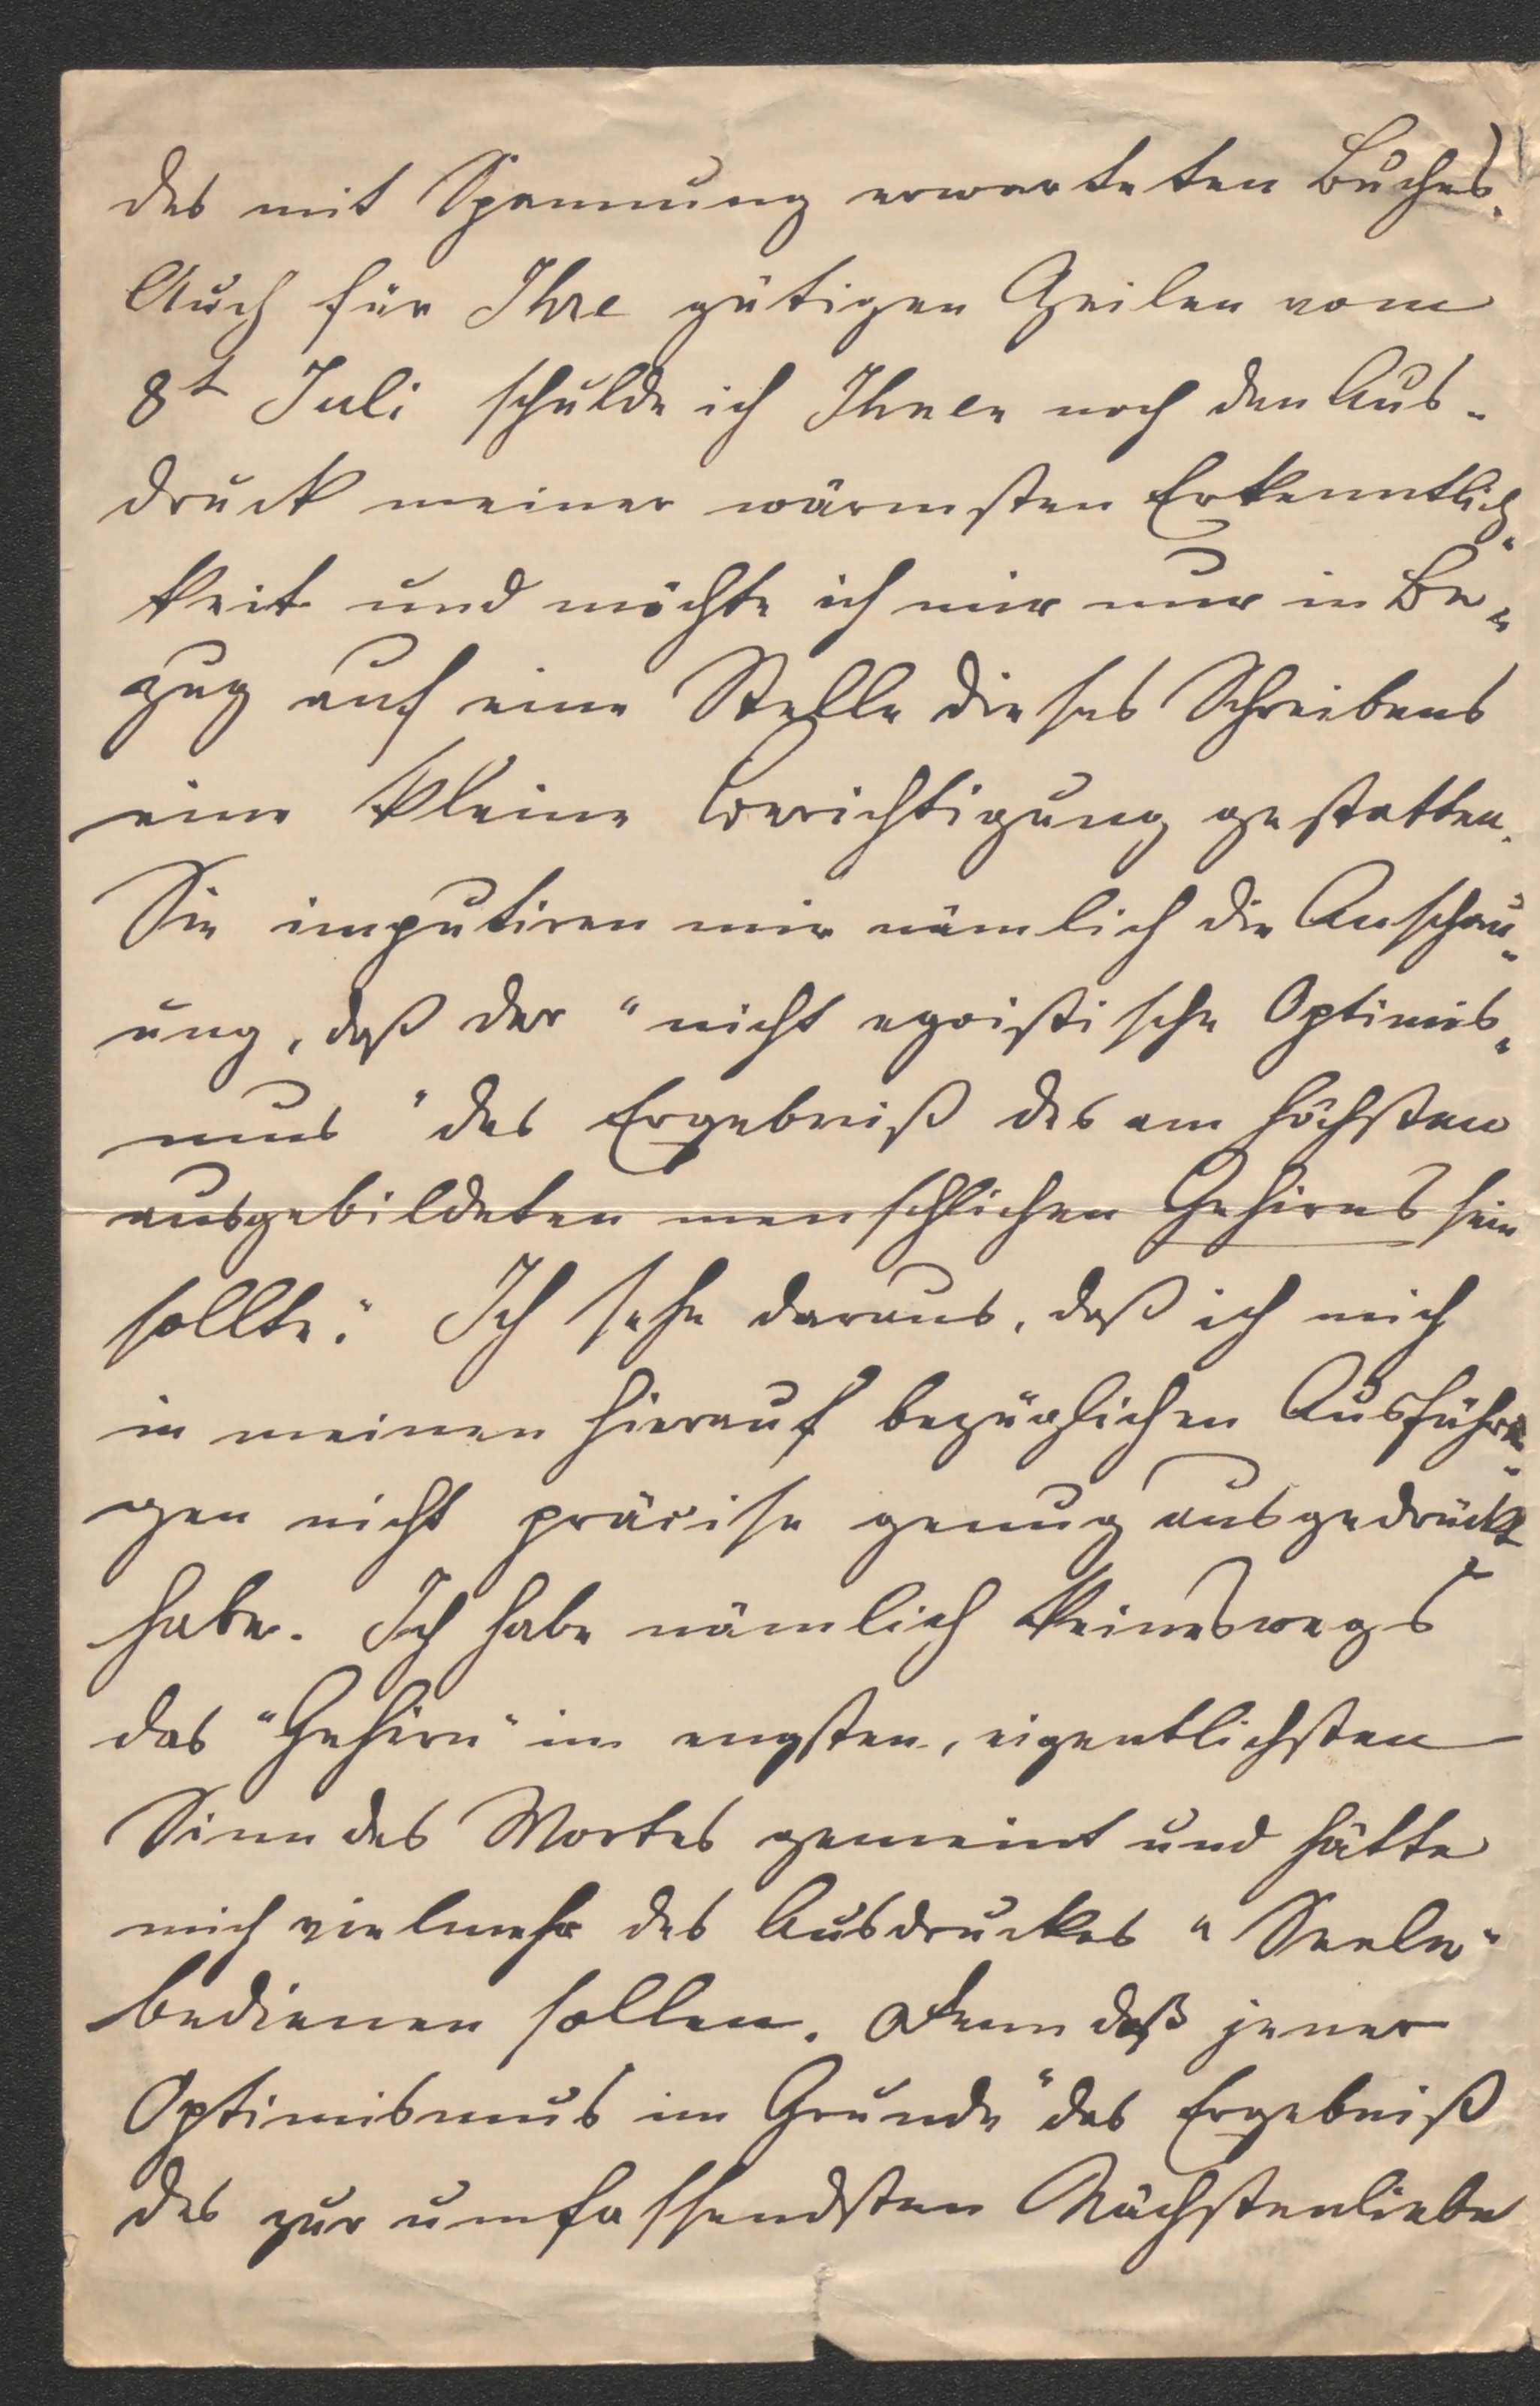 des mit Spannung erwarteten Buches.
Auch für Ihre gütigen Zeilen vom
8t Juli schulde ich Ihnen noch den Aus-
druck meiner wärmsten Erkenntlich-
keit und möchte ich mir nur in Be-
zug auf eine Stelle dieses Schreibens
eine kleine Berichtigung gestatten.
Sie imputiren mir nämlich die Anschau-
ung, daß der "nicht egoistische Optimis-
mus" das Ergebniß des am höchsten
ausgebildeten menschlichen Gehirns sein
sollte." Ich sehe daraus, daß ich mich
in meinen hierauf bezüglichen Ausführun-
gen nicht präcise genug ausgedrückt
habe. Ich habe nämlich keineswegs
das "Gehirn" im engsten, eigentlichsten
Sinn des Wortes gemeint und hätte
mich vielmehr des Ausdruckes "Seele"
bedienen sollen. Denn daß jener
Optimismus im Grunde "das Ergebniß
des zur umfassendsten Nächstenliebe